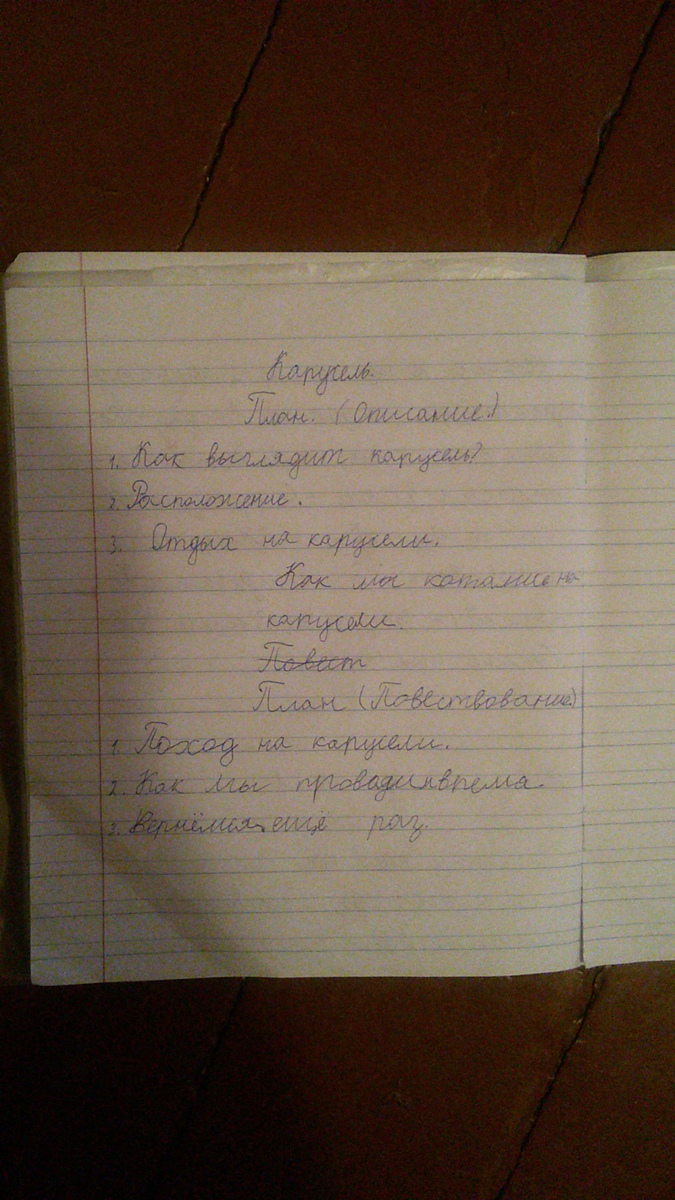 Карусель.
План. (Описание.)
1. Как выглядит карусель?
2. Расположение.
3. Отдых на карусели.
Как мы на
карусели.
Повест
План (Повествование.)
1. Поход на карусели.
2. Как мы время.
3. Вернёмся ещё раз.